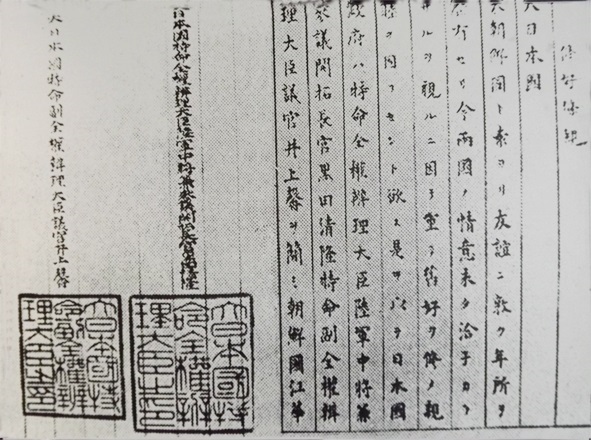 修好條規
大日本國
大朝鮮國ト素ヨリ友誼ニ敦ク年所ヲ
歷有セリ今兩國ノ情意未タ洽子カラ
サルヲ視ルニ因テ重テ舊好ヲ修メ親
睦ヲ固フセント欲ス是ヲ以テ日本國
政府ハ特命全權辨理大臣陸軍中將兼
參議開拓長官黒田清隆特命副全權辨
理大臣議官井上馨ヲ簡ミ朝鮮國江華
大日本國特命全權辨理大臣陸軍中將兼參議開拓長官黒田清隆
大日本國特命副全權辨理大臣議官井上馨
大日本國特
命全權辨
理大臣之印
大日本國特
命副全權辨
理大臣章